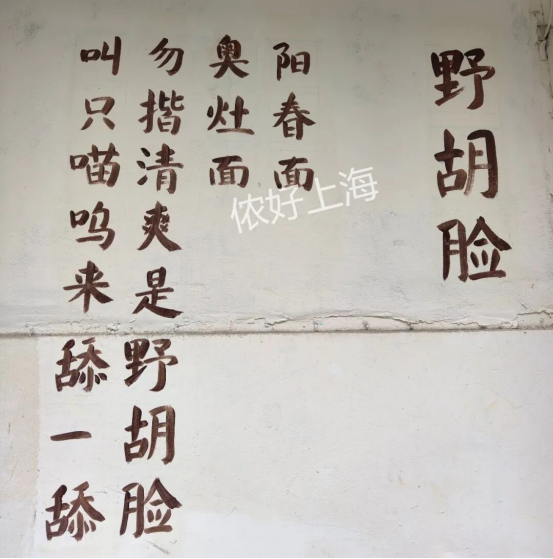 野胡脸
阳春面
奥灶面
勿揩清爽是野胡脸
叫只喵呜来舔一舔
侬好上海